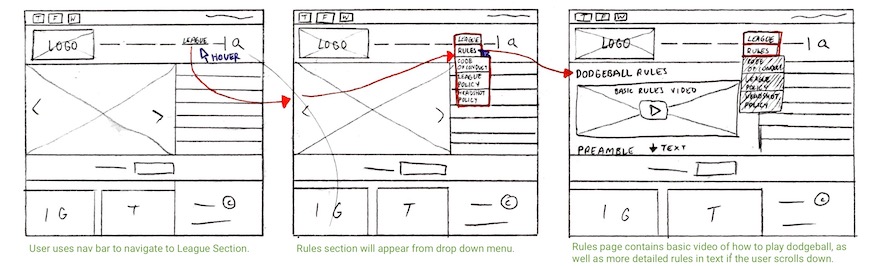 T F W
LOGO
LEAGUE
Q
HOVER
I G
T
C
User uses nav bar to navigate to League Section.
T F W
LOGO
LEAGUE
Q
RULES
CODE
OF CONDUCT
LEAGUE
POLICY
HEADSHOT
POLICY
I G
T
C
Rules section will appear from drop down menu.
T F W
LOGO
LEAGUE
Q
RULES
CODE
OF CONDUCT
LEAGUE
POLICY
HEADSHOT
POLICY
DODGEBALL RULES
BASIC RULES VIDEO
PREAMBLE ↓ TEXT
I G
T
C
Rules page contains basic video of how to play dodgeball, as
well as more detailed rules in text if the user scrolls down.